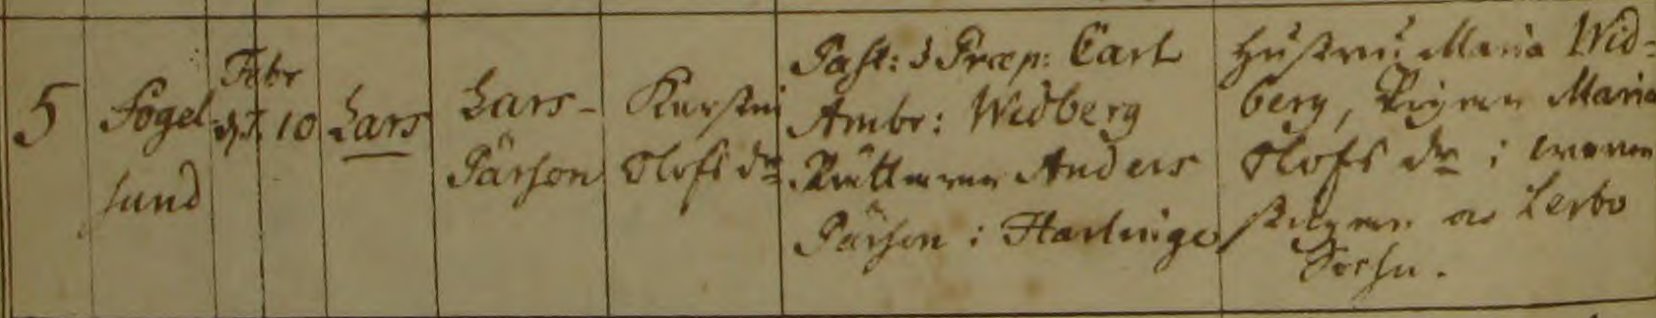 5
Fogel
sund
Febr
d. 10
Lars
Lars-
Pärson
Kerstin
Olofs dr
Past: & Præp: Carl
Ambr: Widberg
Rättaren Anders
Pärson i Harlinge
Hustru Maria Wid-
berg, Pigan Maria
Olofs dr i
Lerbo
Sochn.